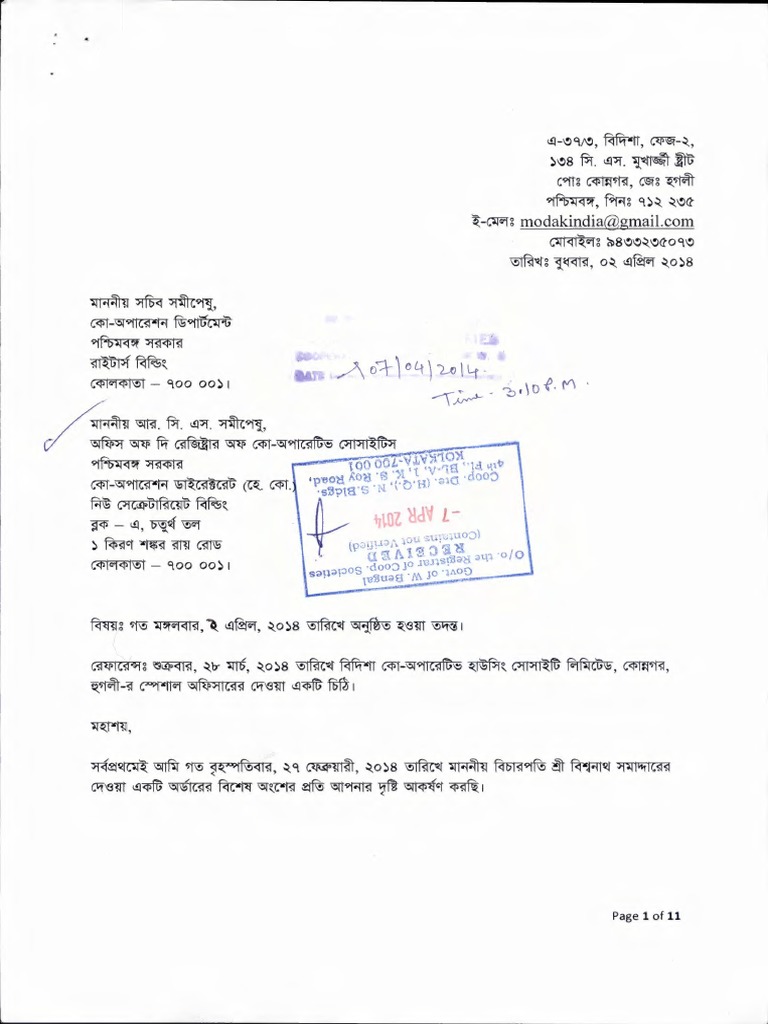 এ-৩৭/৩, বিদিশা, ফেজ-২,
১৩৪ সি. এস. মুখার্জ্জী ষ্ট্রীট
পোঃ কোন্নগর, জেঃ হুগলী
পশ্চিমবঙ্গ, পিনঃ ৭১২ ২৩৫
ই-মেলঃ modakindia@gmail.com
মোবাইলঃ ৯৪৩৩২৩৫০৭৩
তারিখঃ বুধবার, ০২ এপ্রিল ২০১৪
মাননীয় সচিব সমীপেষু,
কো-অপারেশন ডিপার্টমেন্ট
পশ্চিমবঙ্গ সরকার
রাইটার্স বিল্ডিং
কোলকাতা – ৭০০ ০০১।
07/04/2014.
Time - 3.10 P.M.
মাননীয় আর. সি. এস. সমীপেষু,
অফিস অফ দি রেজিষ্ট্রার অফ কো-অপারেটিভ সোসাইটিস
পশ্চিমবঙ্গ সরকার
কো-অপারেশন ডাইরেক্টরেট (হে. কো.)
নিউ সেক্রেটারিয়েট বিল্ডিং
ব্লক – এ, চতুর্থ তল
১ কিরণ শঙ্কর রায় রোড
কোলকাতা – ৭০০ ০০১।
Govt. of W. Bengal
O/o. the Registrar of Coop. Societies
RECEIVED
(Contains not Verified)
-7 APR 2014
Coop. Dte. (H.Q.), N.S.Bldgs.
4th Fl., BL-A, 1, K. S. Roy Road,
KOLKATA-700 001
বিষয়ঃ গত মঙ্গলবার, ২ এপ্রিল, ২০১৪ তারিখে অনুষ্ঠিত হওয়া তদন্ত।
রেফারেন্সঃ শুক্রবার, ২৮ মার্চ, ২০১৪ তারিখে বিদিশা কো-অপারেটিভ হাউসিং সোসাইটি লিমিটেড, কোন্নগর,
হুগলী-র স্পেশাল অফিসারের দেওয়া একটি চিঠি।
মহাশয়,
সর্বপ্রথমেই আমি গত বৃহস্পতিবার, ২৭ ফেব্রুয়ারী, ২০১৪ তারিখে মাননীয় বিচারপতি শ্রী বিশ্বনাথ সমাদ্দারের
দেওয়া একটি অর্ডারের বিশেষ অংশের প্রতি আপনার দৃষ্টি আকর্ষণ করছি।
Page 1 of 11